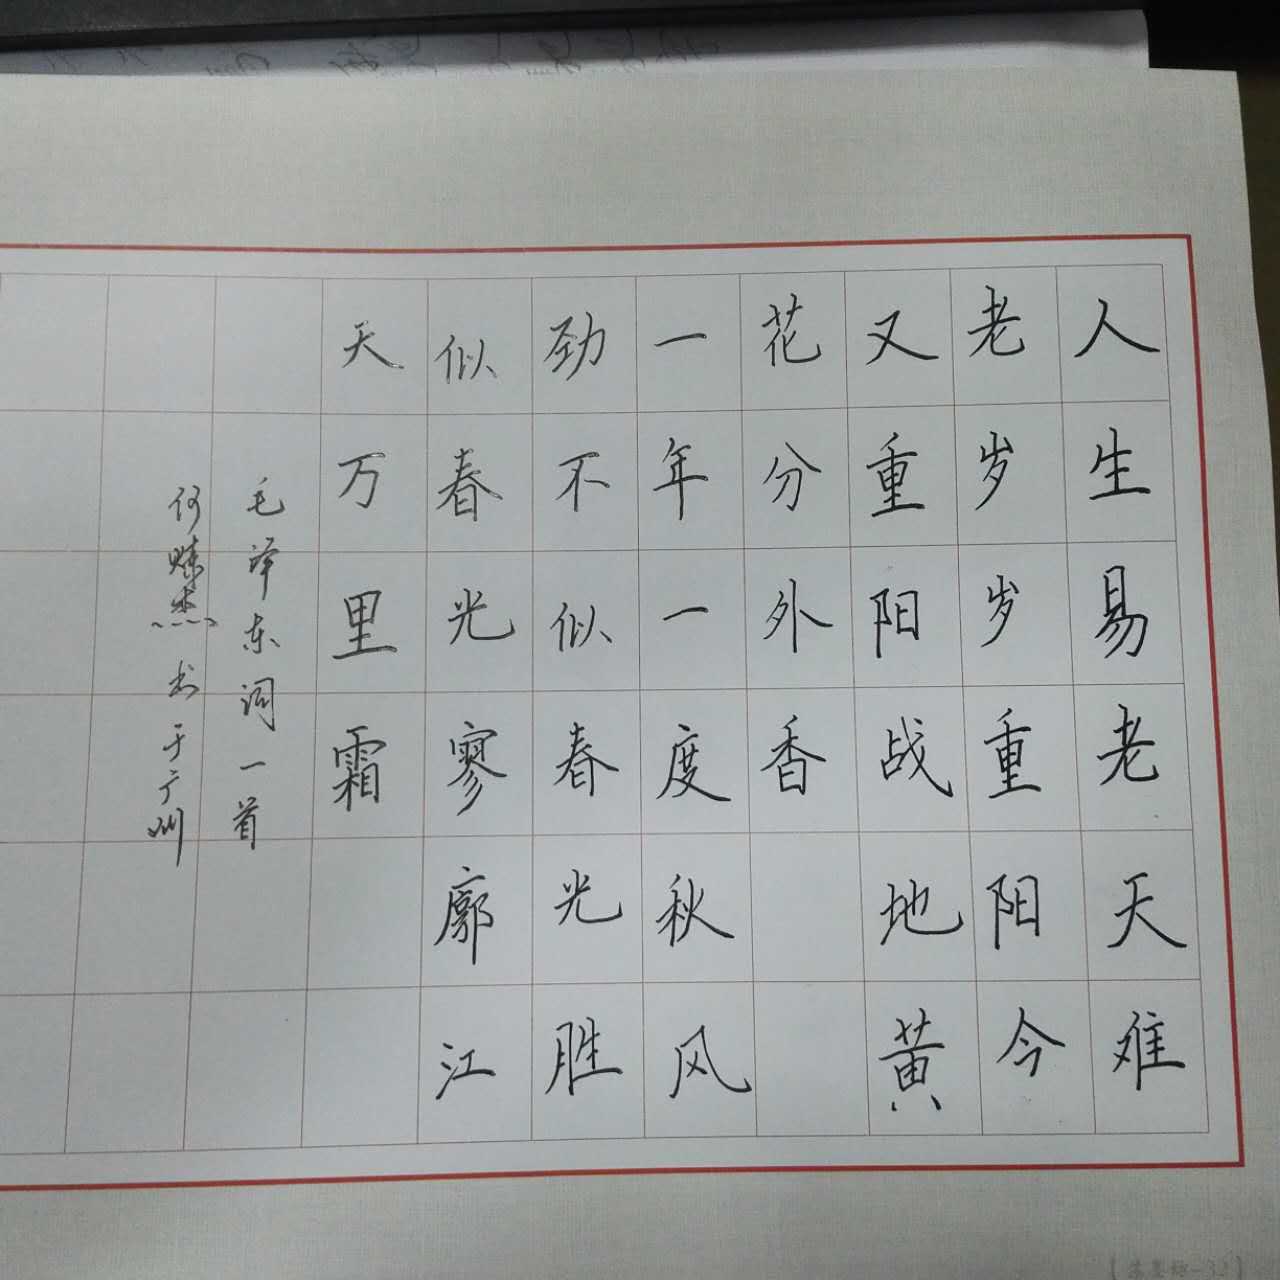 人生易老天难
老岁岁重阳今
又重阳战地黄
花分外香
一年一度秋风
劲不似春光胜
似春光寥廓江
天万里霜
毛泽东词一首
何 杰书于广州